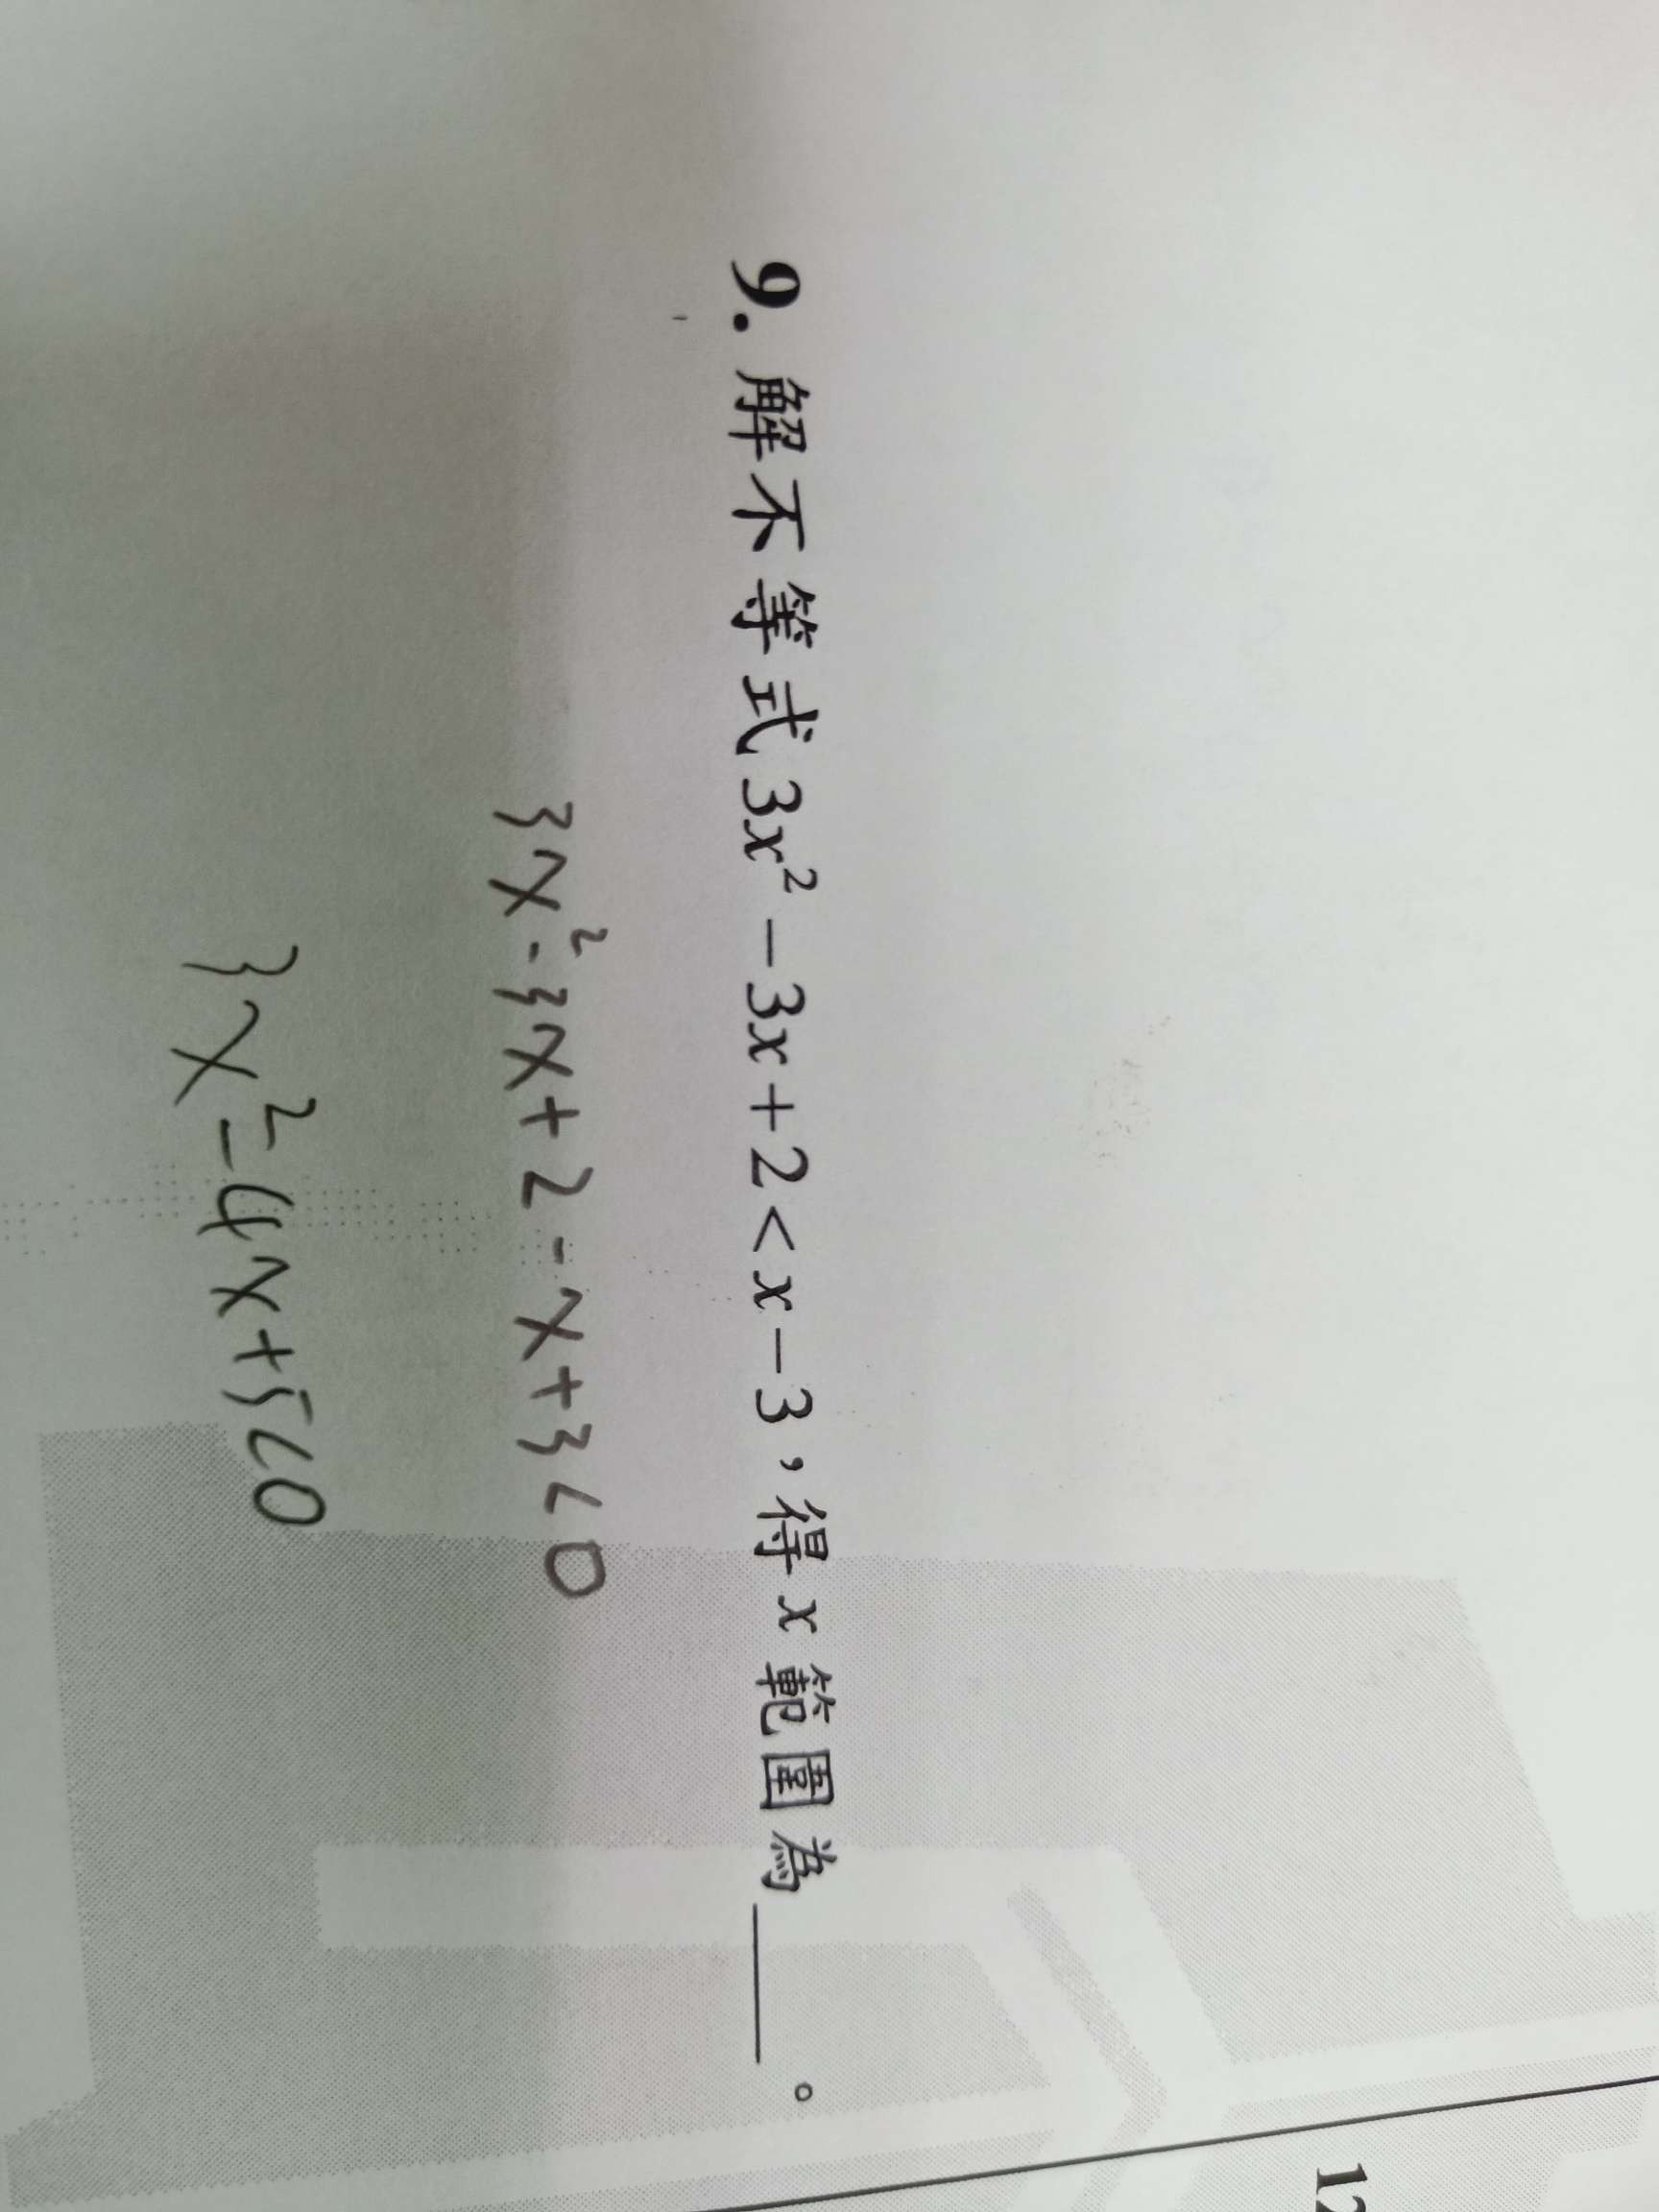 9. 解不等式3x²-3x+2<x-3,得x範圍為____。
3x²-3x+2-x+3<0
3x²-4x+5<0
12